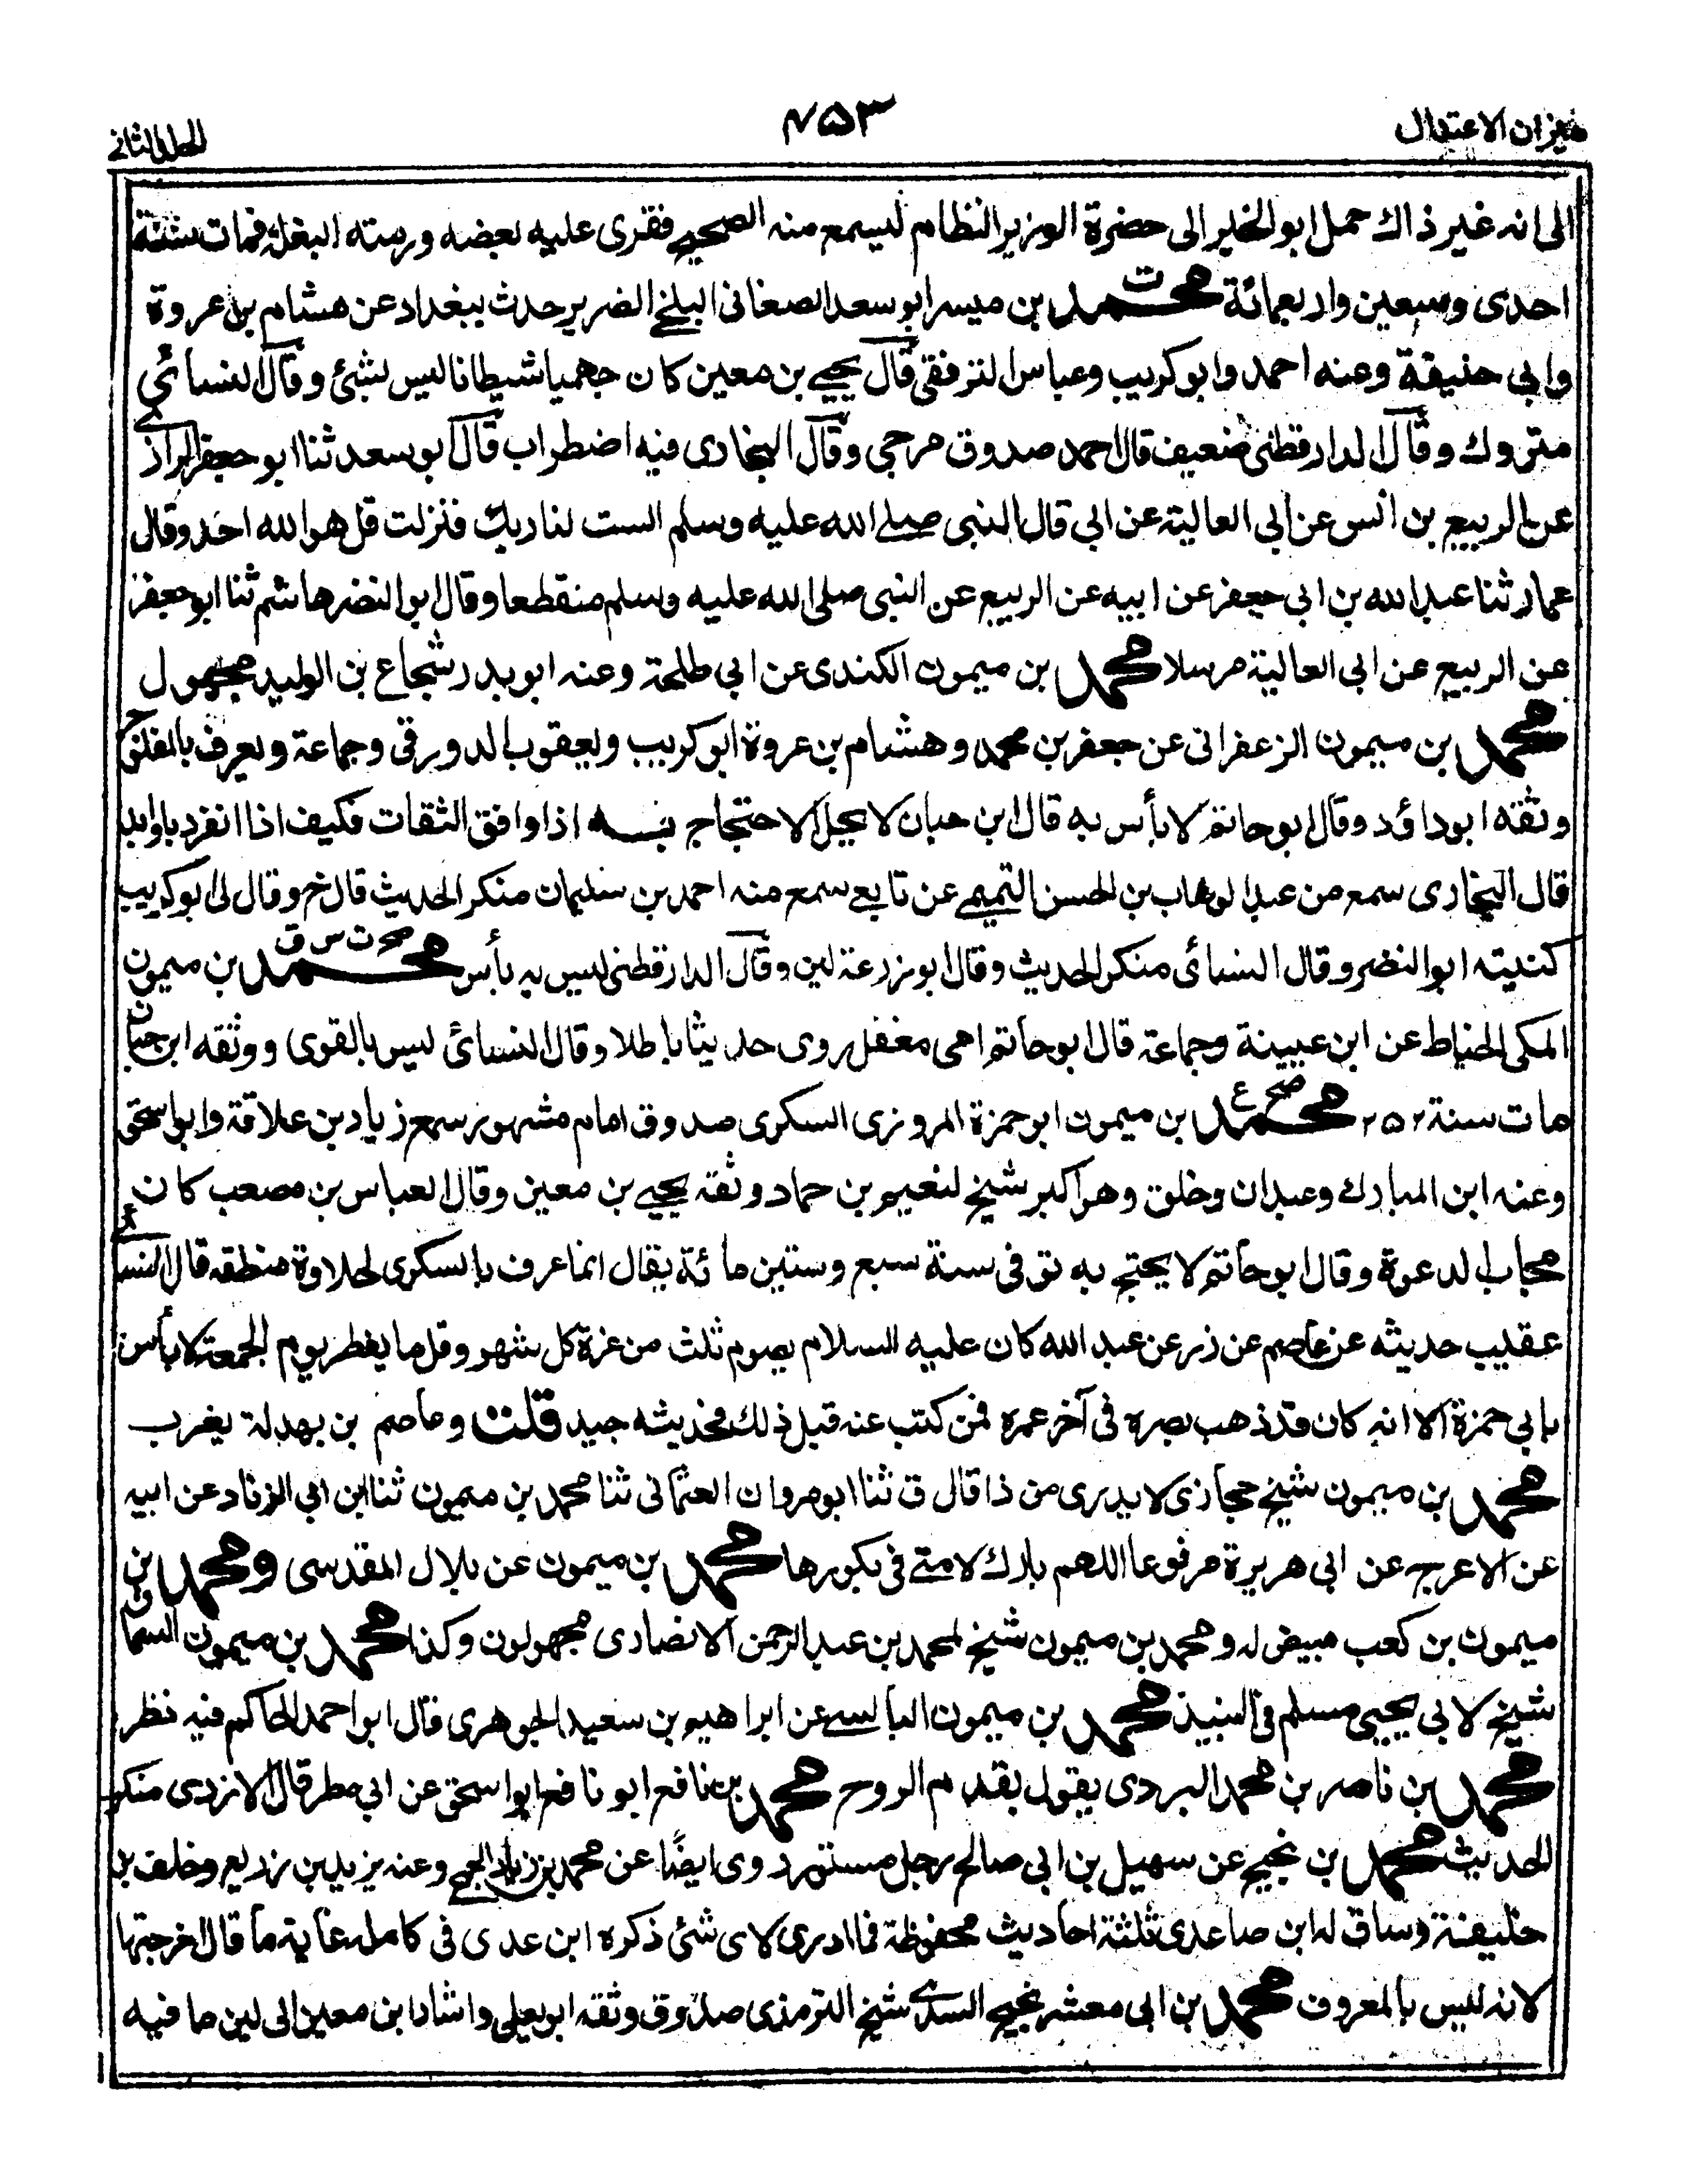 ميزان الاعتدال
٤٥٣
المجلد الثاني
الى انه غير ذاك حمل ابو الخير الى حضرة الوزير النظام ليسمع منه الصحيح فقرى عليه بعضه ورمته البغلة فمات سنة
احدى وسبعين واربعمائة محمد ت بن ميسر ابو سعد الصغانى البلخي الضرير حدث ببغداد عن هشام بن عروة
وابي حنيفة وعنه احمد وابو كريب وعباس الترفقى قال يحيى بن معين كان جهميا شيطانا ليس بشئ وقال النسائي
متروك وقال الدارقطنى ضعيف قال احمد صدوق مرجى وقال البخارى فيه اضطراب قال ابو سعد ثنا ابو جعفر الرازى
عن الربيع بن انس عن ابي العالية عن ابي قال النبى صلى الله عليه وسلم الست لنا ربك فنزلت قل هو الله احد وقال
عمار ثنا عبد الله بن ابي جعفر عن ابيه عن الربيع عن النبى صلى الله عليه وسلم منقطعا وقال ابو النضر هاشم ثنا ابو جعفر
عن الربيع عن ابى العالية مرسلا محمد بن ميمون الكندى عن ابي طلحة وعنه ابو بدر شجاع بن الوليد مجهول
محمد بن ميمون الزعفرانى عن جعفر بن محمد وهشام بن عروة ابو كريب ويعقوب الدورقى وجماعة ويعرف بالمفلوج
وثقه ابو داؤد وقال ابو حاتم لا بأس به قال ابن حبان لا يحل الاحتجاج به اذا وافق الثقات فكيف اذا انفرد باوابد
قال البخارى سمع من عبد الوهاب بن الحسن التميمي عن تابع سمع منه احمد بن سليمان منكر الحديث قال خ وقال لى ابو كريب
كنيته ابو النضر وقال النسائى منكر الحديث وقال ابو زرعة لين وقال الدارقطنى ليس به بأس محمد صح ت س ق بن ميمون
المكى الخياط عن ابن عيينة وجماعة قال ابو حاتم امى مغفل روى حديثا باطلا وقال النسائئ ليس بالقوى ووثقه ابن حبان
مات سنة ٢٥٢ محمد صح ع بن ميمون ابو حمزة المروزى السكرى صدوق امام مشهور سمع زياد بن علاقة وابا اسحق
وعنه ابن المبارك وعبدان وخلق وهو اكبر شيخ لنعيم بن حماد وثقه يحيى بن معين وقال العباس بن مصعب كان
مجاب الدعوة وقال ابو حاتم لا يحتج به توفى سنة سبع وستين مائة يقال انما عرف بالسكرى لحلاوة منطقه قال النسائى
عقيب حديثه عن عاصم عن زر عن عبد الله كان عليه السلام يصوم ثلث من غرة كل شهر وقل ما يفطر يوم الجمعة لا بأس
بابي حمزة الا انه كان قد ذهب بصره في آخر عمره فمن كتب عنه قبل ذلك فحديثه جيد قلت وعاصم بن بهدلة يغرب
محمد بن ميمون شيخ حجازى لا يدرى من ذا قال ق ثنا ابو مروان العثمانى ثنا محمد بن ميمون ثنا ابن ابي الزناد عن ابيه
عن الاعرج عن ابى هريرة مرفوعا اللهم بارك لامتى في بكورها محمد بن ميمون عن بلال المقدسى ومحمد بن
ميمون بن كعب مبيض له ومحمد بن ميمون شيخ لمحمد بن عبد الرحمن الانصارى مجهولون وكذا محمد بن ميمون
شيخ لابى يحيى مسلم في النبيذ محمد بن ميمون البالسى عن ابراهيم بن سعيد الجوهرى قال ابو احمد الحاكم فيه نظر
محمد بن ناصر بن محمد البردى يقول بقدم الروح محمد بن نافع ابو نافع ابو اسحق عن ابي مطر قال الازدى منكر
الحديث محمد بن نجيح عن سهيل بن ابى صالح رجل مستور روى ايضًا عن محمد بن زياد الجمحي وعنه يزيد بن زريع وخلف بن
خليفة وساق له ابن صاعدى ثلثة احاديث محفوظة فما ادرى لاى شئ ذكره ابن عدى في كامله غاية ما قال اخرجتها
لانه ليس بالمعروف محمد بن ابى معشر نجيح السندى شيخ الترمذى صدوق وثقه ابو يعلى واشار ابن معين الى لين ما فيه